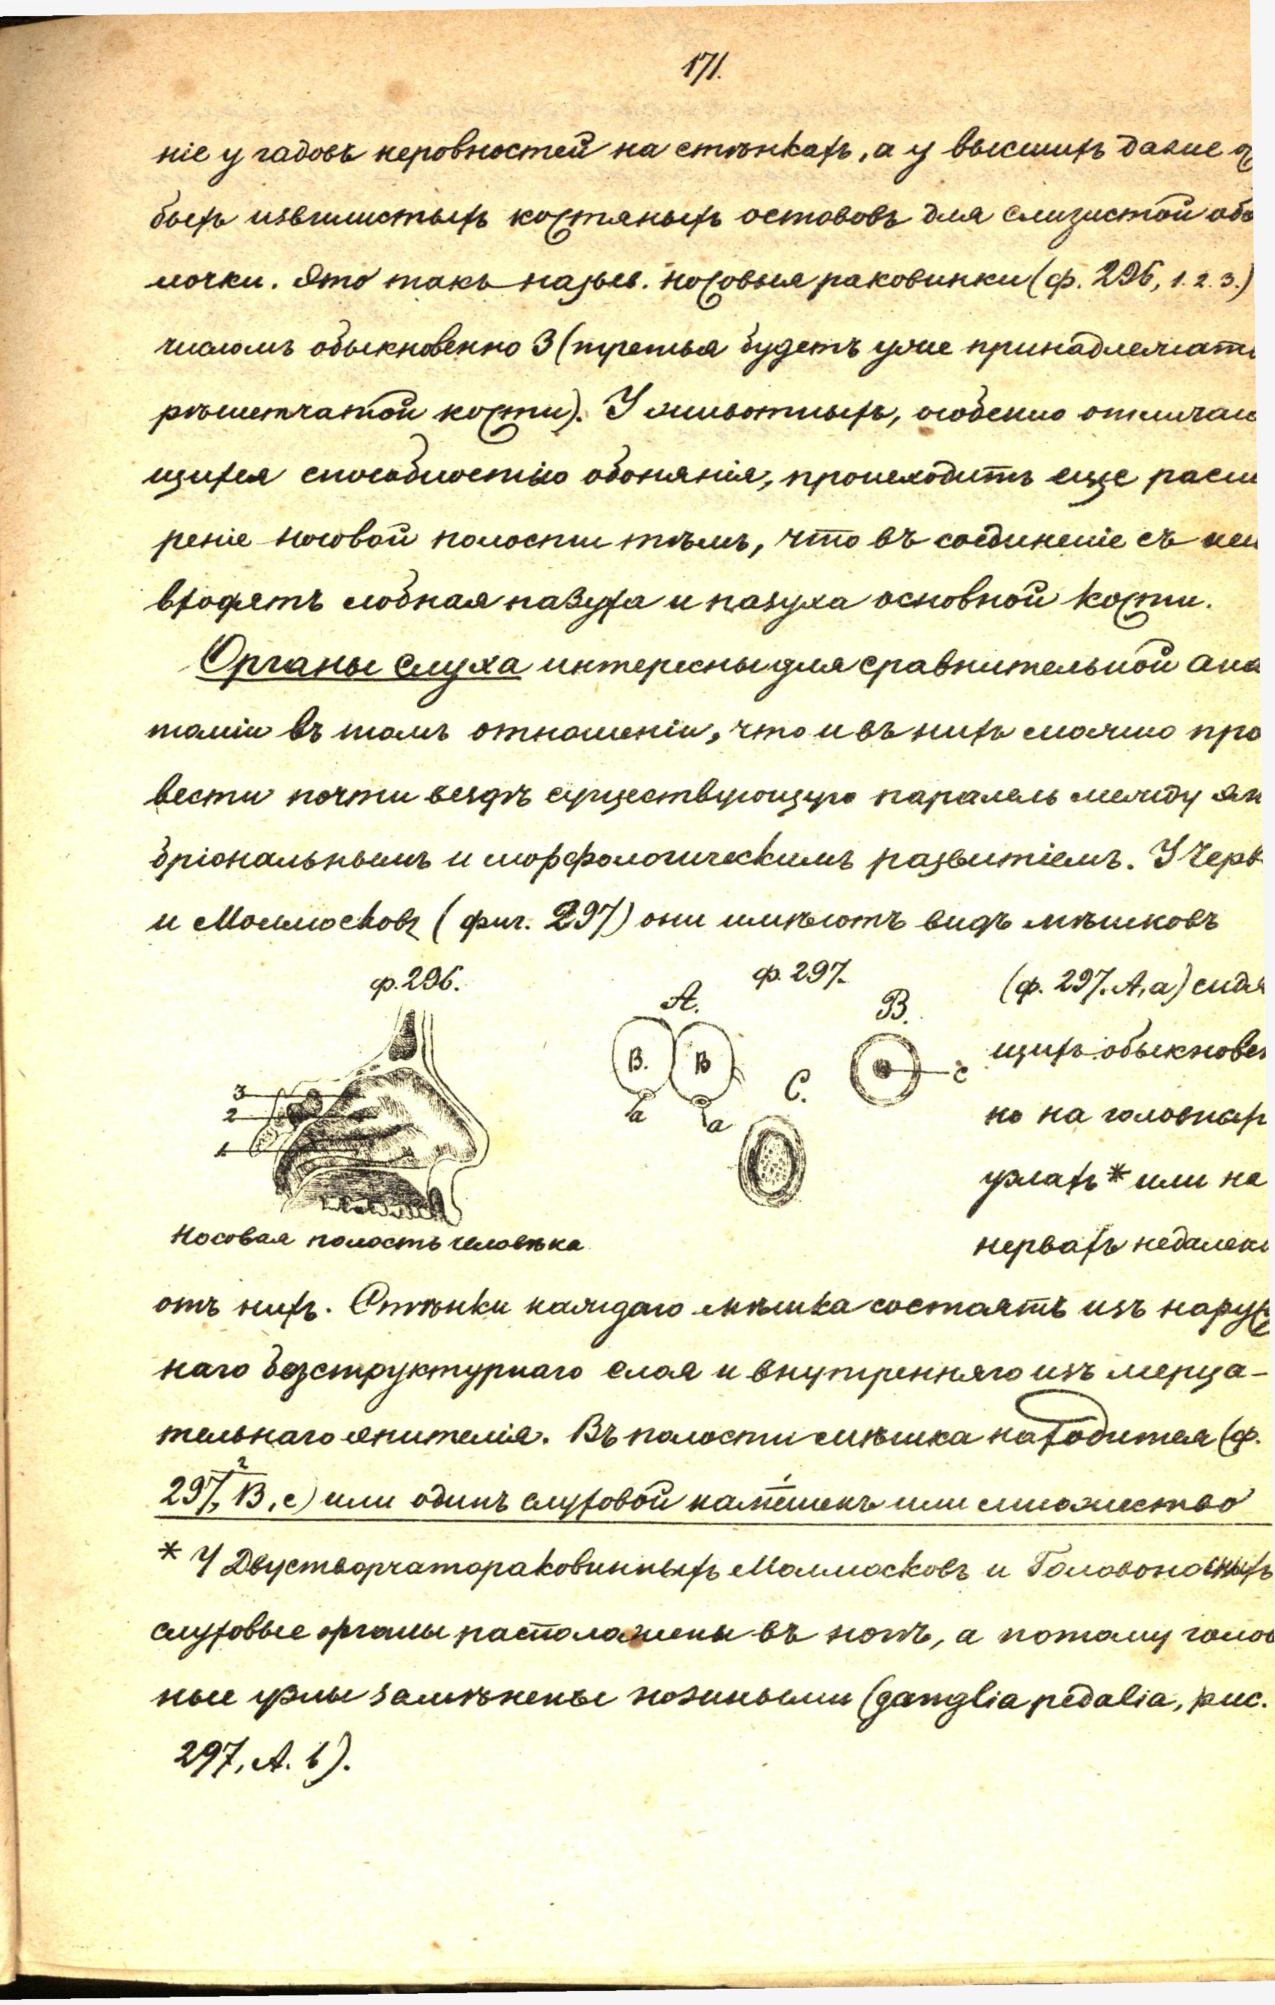 171.
ніе у гадовъ неровностей на стѣнкахъ, а у высшихъ далѣе
быхъ извилистыхъ костяныхъ остововъ для слизистой обо
лочки. Это такъ назыв. носовыя раковинки (ф. 296, 1. 2. 3.)
числомъ обыкновенно 3 (третья будетъ уже принадлежать
рѣшетчатой кости). У животныхъ, особенно отличаю
щихся способностію обонянія, происходитъ еще расши
реніе носовой полости тѣмъ, что въ соединеніе съ ней
входятъ лобная пазуха и пазуха основной кости.
Органы слуха интересны для сравнительной ана
томіи въ томъ отношеніи, что и въ нихъ можно про
вести почти вездѣ существующую паралель между эм
бріональнымъ и морфологическимъ развитіемъ. У Черв
и Моллюсковъ (фиг. 297) они имѣютъ видъ мѣшковъ
ф. 296.
ф. 297.
(ф. 297. А, а) сидя
щихъ обыкновен
но на головныхъ
узлахъ * или на
нервахъ недалеко
3
2
1
А.
В.
В
а
а
В.
с
С.
Носовая полость человѣка
отъ нихъ. Стѣнки каждаго мѣшка состоятъ изъ наруж
наго безструктурнаго слоя и внутренняго изъ мерца-
тельнаго эпителія. Въ полости мѣшка находится (ф.
297, В, с) или одинъ слуховой камешекъ или множество
* У Двустворчатораковинныхъ Моллюсковъ и Головоногихъ
слуховые органы расположены въ ногѣ, а потому голов
ные узлы замѣнены ножными (ganglia pedalia, рис.
297, А. b).